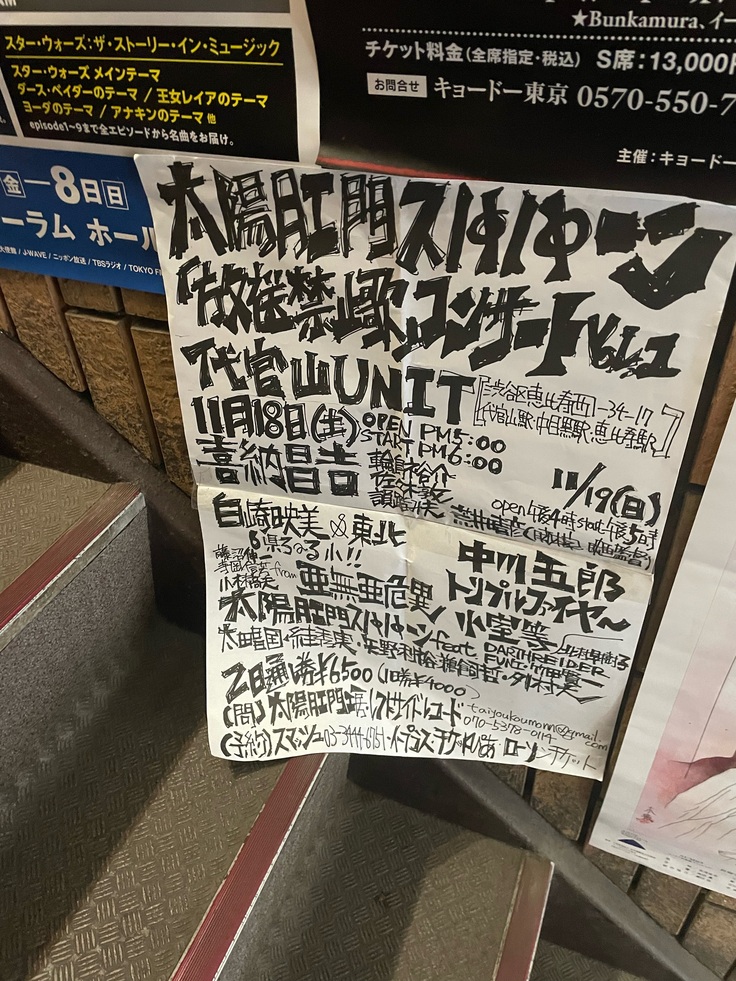 スター・ウォーズ：ザ・ストーリー・イン・ミュージック
スター・ウォーズ メインテーマ
ダース・ベイダーのテーマ / 王女レイアのテーマ
ヨーダのテーマ / アナキンのテーマ 他
episode1~9まで全エピソードから名曲をお届け。
金—8日日
ーラム ホール
J-WAVE / ニッポン放送 / TBSラジオ / TOKYO F
★Bunkamura、イー
チケット料金(全席指定・税込) S席：13,000
お問合せ キョードー東京 0570-550-7
主催：キョードー
太陽肛門スパパーン
「放送禁止歌」コンサートVol.1
代官山UNIT
[渋谷区恵比寿西1-34-17
代官山駅・中目黒駅・恵比寿駅]
11月18日(土) OPEN PM5:00
START PM6:00
喜納昌吉
11/19(日)
open午後4時start午後5時
白崎映美&東北
6県ろ〜る小!!
from 亜無亜危異
中川五郎
トリプルファイヤ〜
小室等
太陽肛門スパパーン feat.
DARTHREIDER
2日通し券¥6500(1日券¥4000)
(問)太陽肛門工房・レフトサイドレコード
070-5378-0114
(予約)スマッシュ03-3444-6751・イープラス・チケットぴあ・ローソンチケット